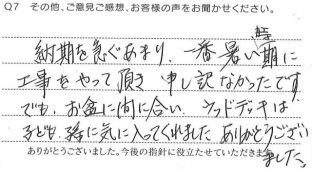 Q7 その他、ご意見ご感想、お客様の声をお聞かせください。
納期を急ぐあまり、一番暑い時期に
工事をやって頂き 申し訳なかったです
でも、お盆に間に合い、ウッドデッキは
子ども、孫に気に入ってくれました ありがとうござい
ました。
ありがとうございました。今後の指針に役立たせていただきま